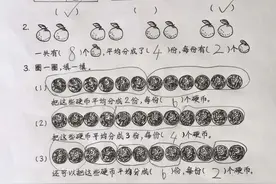 (✓) ( ) ( ) (✓)
2.
一共有(8)个，平均分成了(4)份，每份有(2)个
3. 圈一圈，填一填。
(1)
把这些硬币平均分成2份，每份(6)个硬币。
(2)
把这些硬币平均分成3份，每份(4)个硬币。
(3)
还可以把这些硬币平均分成(6)份，每份(2)个硬币。